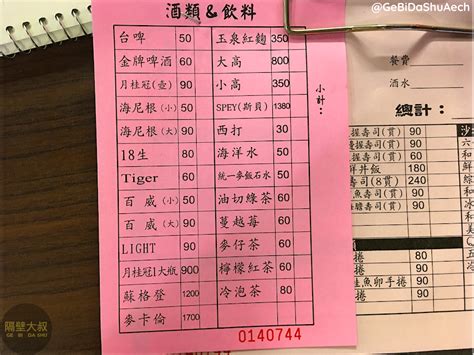 @GeBiDaShuAech
酒類&飲料
台啤 50 玉泉紅麴 350
金牌啤酒 60 大高 800
月桂冠(壺) 90 小高 350
海尼根(小) 50 SPEY(斯貝) 1380
海尼根(大) 90 西打 30
18生 80 海洋水 50
Tiger 60 統一麥飯石水 50
百威(小) 50 油切綠茶 60
百威(大) 90 蔓越莓 60
LIGHT 90 麥仔茶 60
月桂冠1大瓶 900 檸檬紅茶 60
蘇格登 1200 冷泡茶 80
麥卡倫 1700
小計:
0140744
餐費
酒水
總計:
握壽司(貫) 90
握壽司(貫) 90
鮮丼飯
壽司(8貫) 240
魚壽司(貫) 90
膽壽司(貫) 90
捲
捲
鮭魚卵手捲
捲
隔壁大叔
GE BI DA SHU